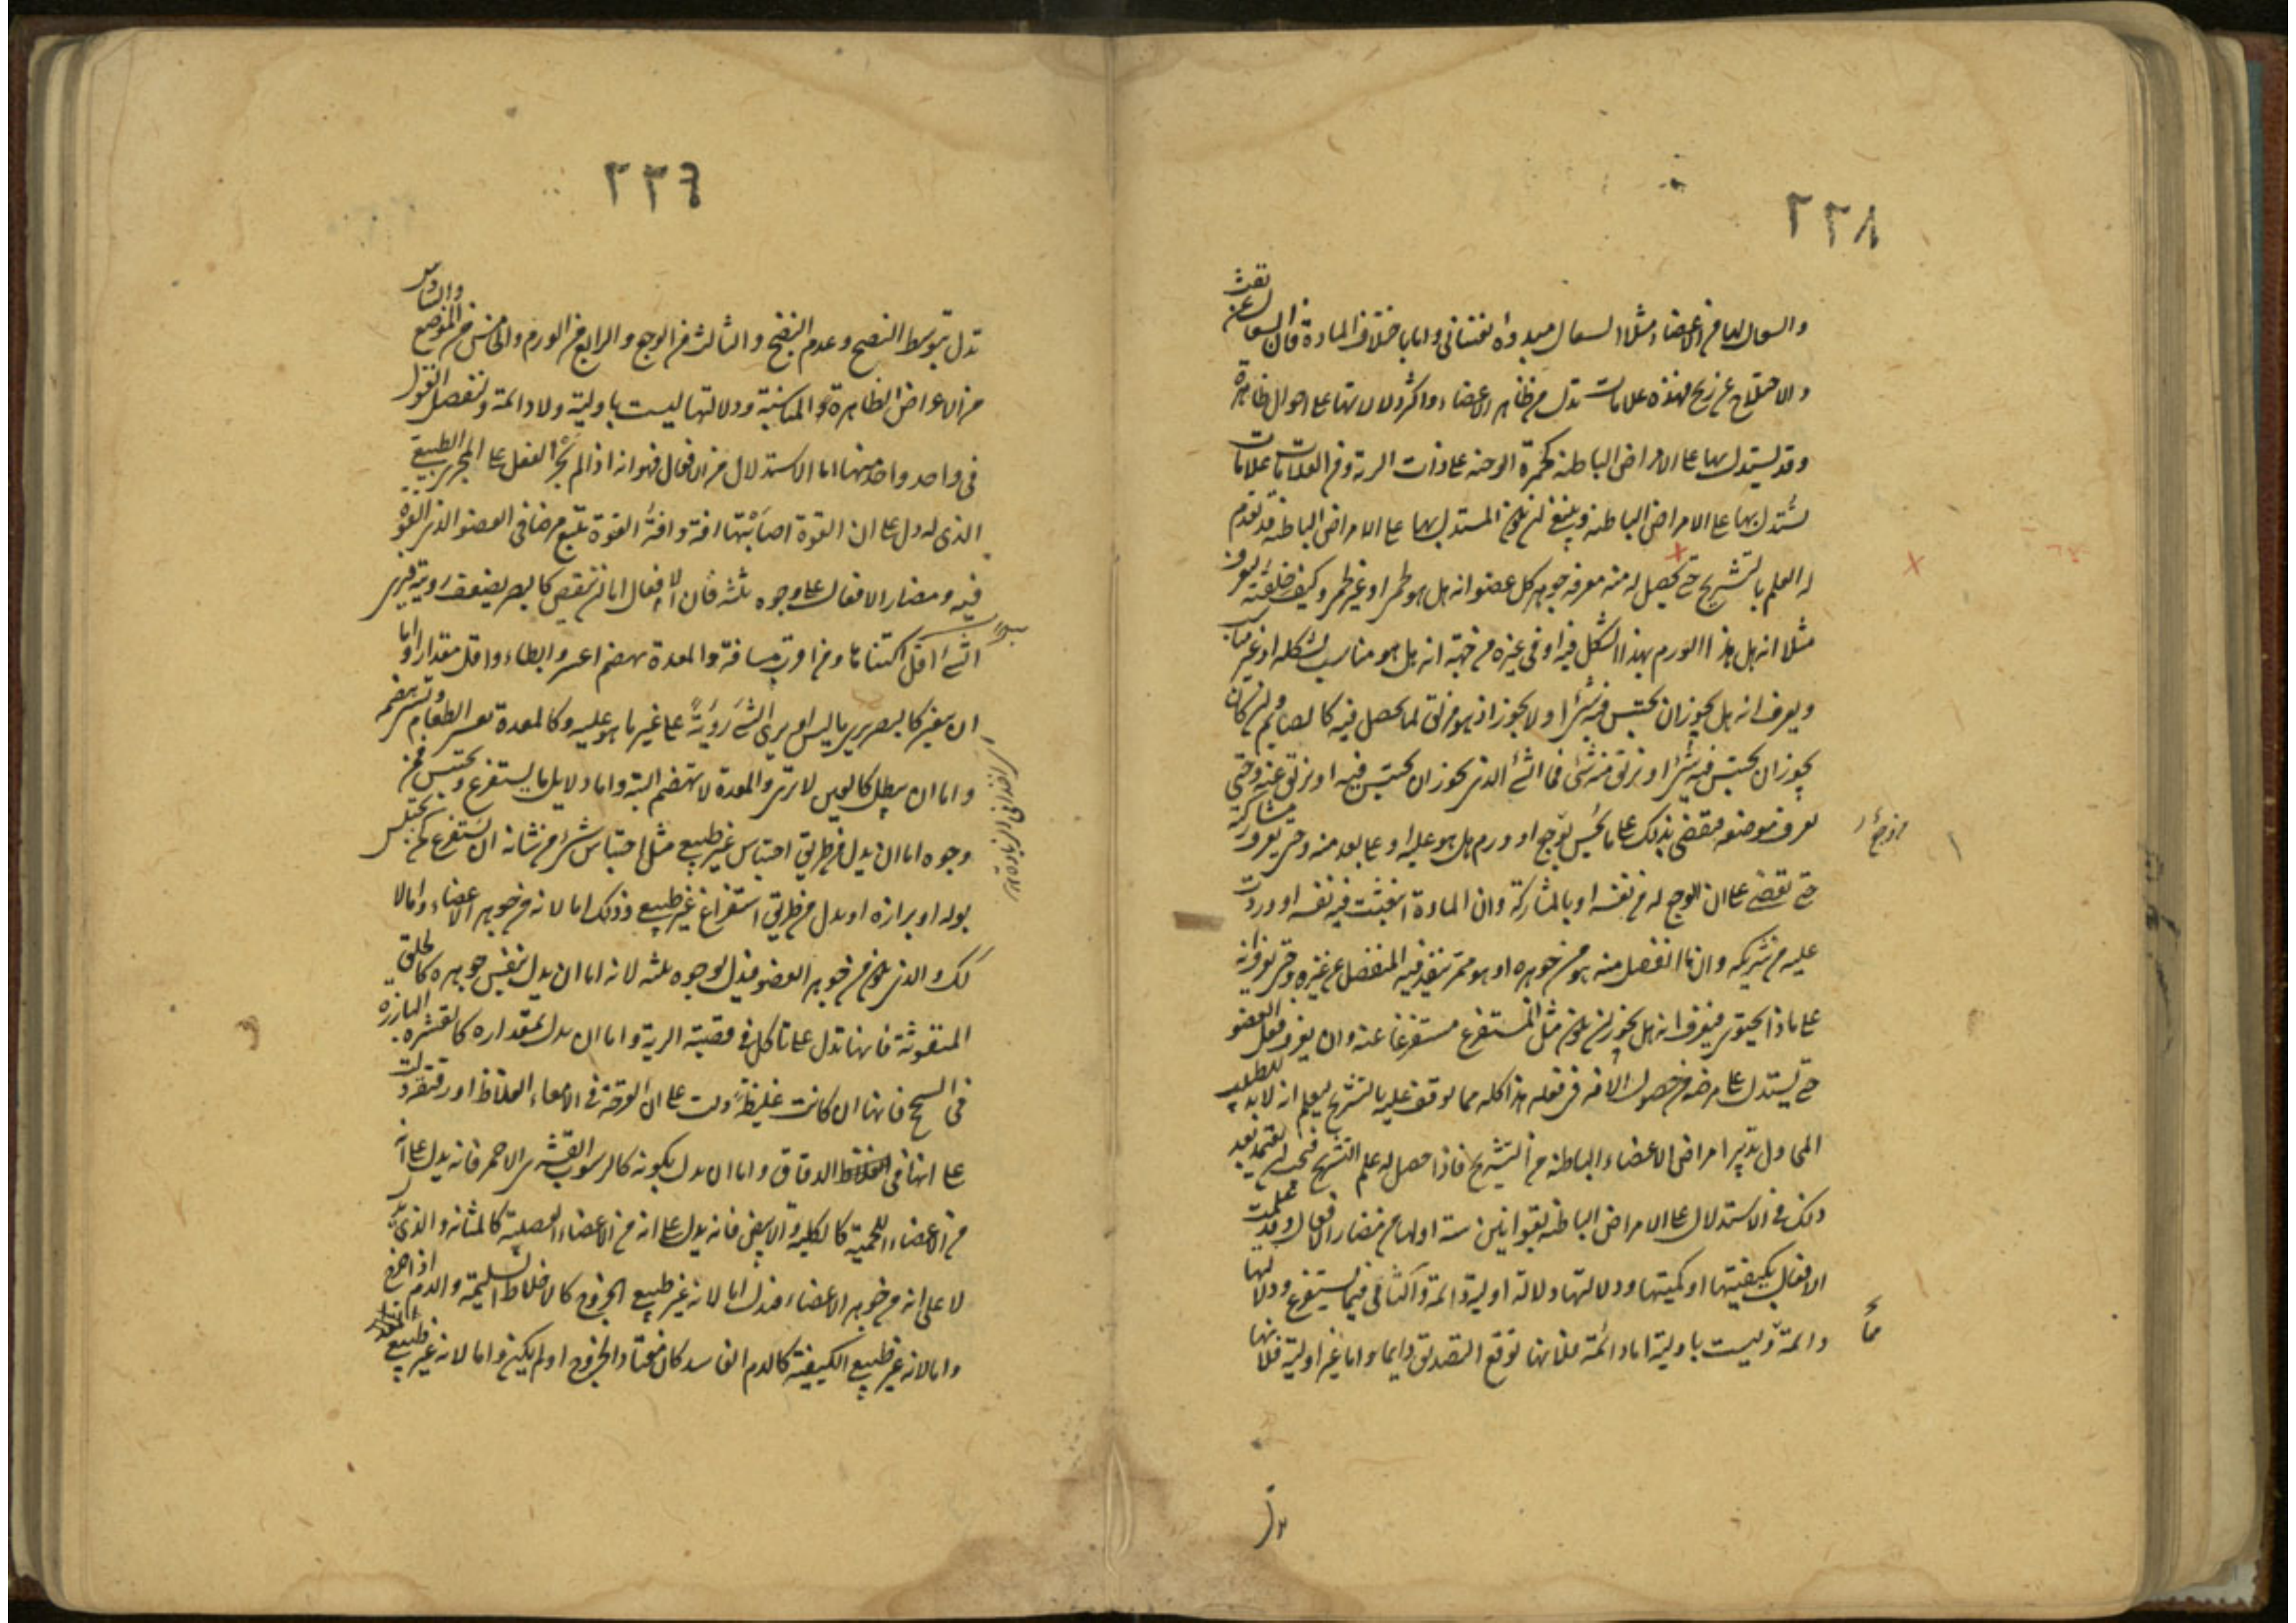 ٢٢٨
والسعال
واما فى الاعضاء مثلا السعال مبدؤه نفسانى واما باختلاف المادة فان السعال عن نفث
والاختلاج عن ريح فهذه علامات تدل من ظاهر الاعضاء واكثر دلالاتها على احوال ظاهرة
وقد يستدل بها على الامراض الباطنة كحمرة الوجنة على ذات الرية ومن العلامات علامات
يستدل بها على الامراض الباطنة وينبغى ان يكون المستدل بها على الامراض الباطنة قد تقدم
له العلم بالتشريح حتى يحصل له منه معرفة جوهر كل عضو انه هل هو لحمى او غير لحمى وكيف خلقته ليعرف
مثلا انه هل هذا الورم بهذا الشكل فيه او فى غيره من جهة انه هل هو مناسب لشكله او غير مناسب
ويعرف انه هل يجوز ان يحتبس فيه شئ او لا يجوز اذ هو مزلق لما يحصل فيه كالصايم وان كان
يجوز ان يحتبس فيه شئ او يزلق منه شئ فما الشئ الذى يجوز ان يحتبس فيه او يزلق عنه وحتى
يعرف موضعه فيقضى بذلك على ما يحس من وجع او ورم هل هو عليه او على بعد منه وحتى يعرف مشاركته
حتى يقضى على ان الوجع له من نفسه او بالمشاركة وان المادة انبعثت فيه نفسه او وردت
عليه من شريكه وان ما انفصل منه هو من جوهره او هو ممر ينفذ فيه المنفصل من غيره وحتى يعرف انه
على ماذا يحتوى فيعرف انه هل يجوز ان يكون مثل المستفرغ مستفرغا عنه وان يعرف فعل العضو
حتى يستدل على مرضه من حصول الآفة فى فعله هذا كله مما يوقف عليه بالتشريح ليعلم انه لا بد للطبيب
المحاول تدبير امراض الاعضاء الباطنة من التشريح فاذا حصل له علم التشريح فيجب ان يعتمد بعد
ذلك فى الاستدلال على الامراض الباطنة بقوانين ستة اولها من مضار الافعال وقد علمت
الافعال بكيفيتها او كميتها ودلالتها دلالة اولية دائمة والثانى فيما يستفرغ ودلالتها
دائمة وليست باولية اما دائمة فلانها توقع التصديق دايما واما غير اولية فلانها
تدل
٢٢٩
تدل بتوسط النضج وعدم النضج والثالث من الوجع والرابع من الورم والخامس من الموضع والسادس
من الاعراض الظاهرة المناسبة ودلالتها ليست باولية ولا دائمة ونفصل القول
فى واحد واحد منها اما الاستدلال من الافعال فهو انه اذا لم يجر الفعل على المجرى الطبيعى
الذى له دل على ان القوة اصابتها افة وافة القوة تتبع مرضا فى العضو الذى القوة
فيه ومضار الافعال على وجوه ثلثة فان الافعال اما ان تنقص كالبصر يضعف رويته فيرى
الشئ اقل اكتناها ومن اقرب مسافة والمعدة تهضم اعسر وابطاء واقل مقدارا واما
ان يتغير كالبصر يرى ما ليس او يرى الشئ رؤية على غير ما هو عليه وكالمعدة تفسد الطعام وتسئ هضمه
واما ان يبطل كالعين لا ترى والمعدة لا تهضم البتة واما دلايل ما يستفرغ ويحتبس فمن
وجوه اما ان يدل من طريق احتباس غير طبيعى مثل احتباس شئ من شانه ان يستفرغ كمن يحتبس
بوله او برازه او يدل من طريق استفراغ غير طبيعى وذلك اما لانه من جوهر الاعضاء واما لا
كك والذى يكون من جوهر العضو فيدل بوجوه ثلثة لانه اما ان يدل بنفس جوهره كالحلق
المنفوثة فانها تدل على تاكل فى قصبة الرية واما ان يدل بمقداره كالقشرة البارزة
فى السحج فانها ان كانت غليظة دلت على ان القرحة فى الامعاء الغلاظ او رقيقة دلت
على انها فى الدقاق واما ان يدل بكونه كالرسوب القشرى الاحمر فانه يدل على انه
من الاعضاء اللحمية كالكلية والابيض فانه يدل على انه من الاعضاء العصبية كالمثانة والذى يدل
لا على انه من جوهر الاعضاء فيدل اما لانه غير طبيعى الخروج كالاخلاط السليمة والدم اذا خرج
واما لانه غير طبيعى الكيفية كالدم الفاسد كان معتاد الخروج او لم يكن واما لانه غير طبيعى